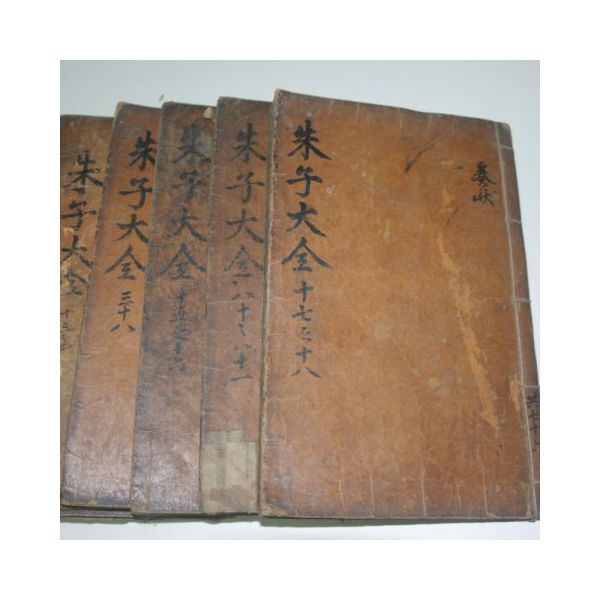 朱子大全 十七之十八
奏狀
朱子大全 八十之八十一
朱子大全 十五之十六
朱子大全 三十八
朱子大全